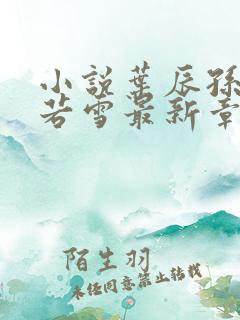 小说叶辰孙
若雪最新章
陌生羽
未经同意禁止转载